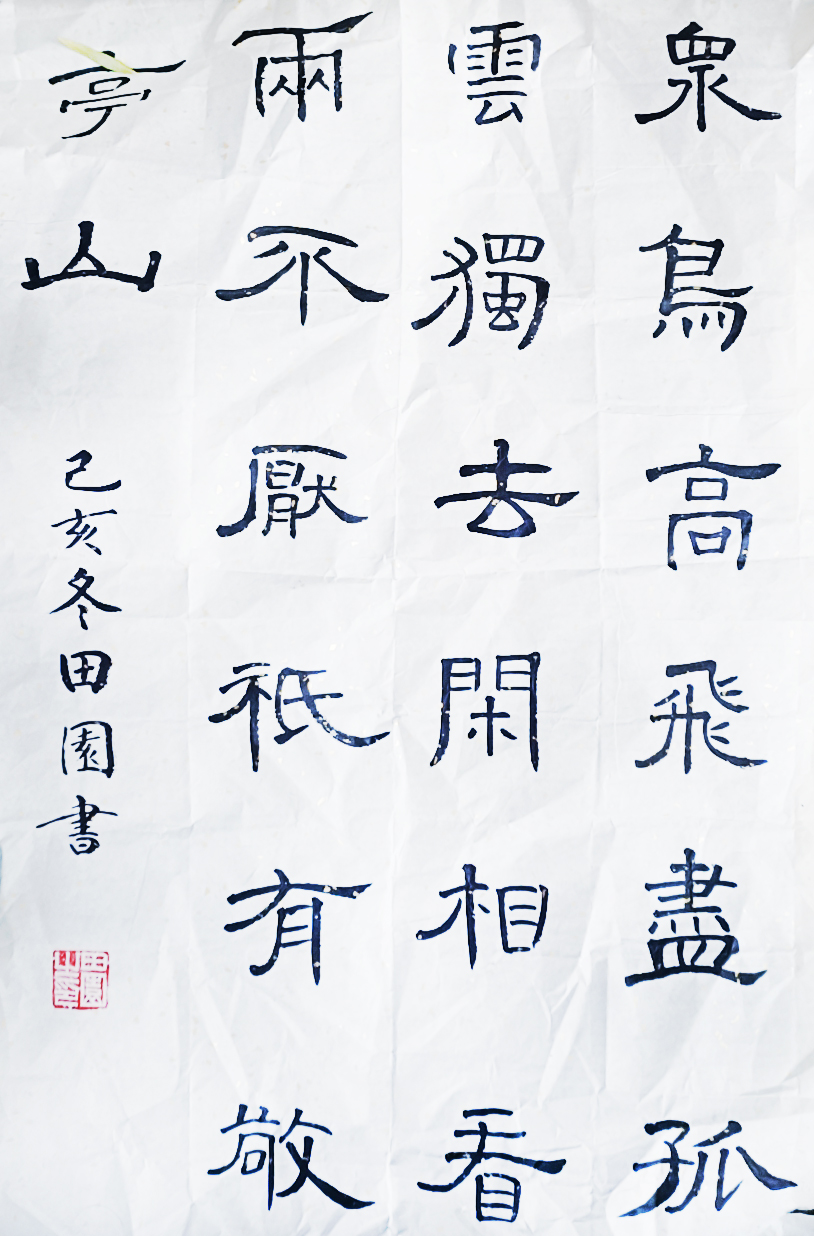 眾鳥高飛盡孤
雲獨去閑相看
兩不厭祇有敬
亭山
己亥冬田園書